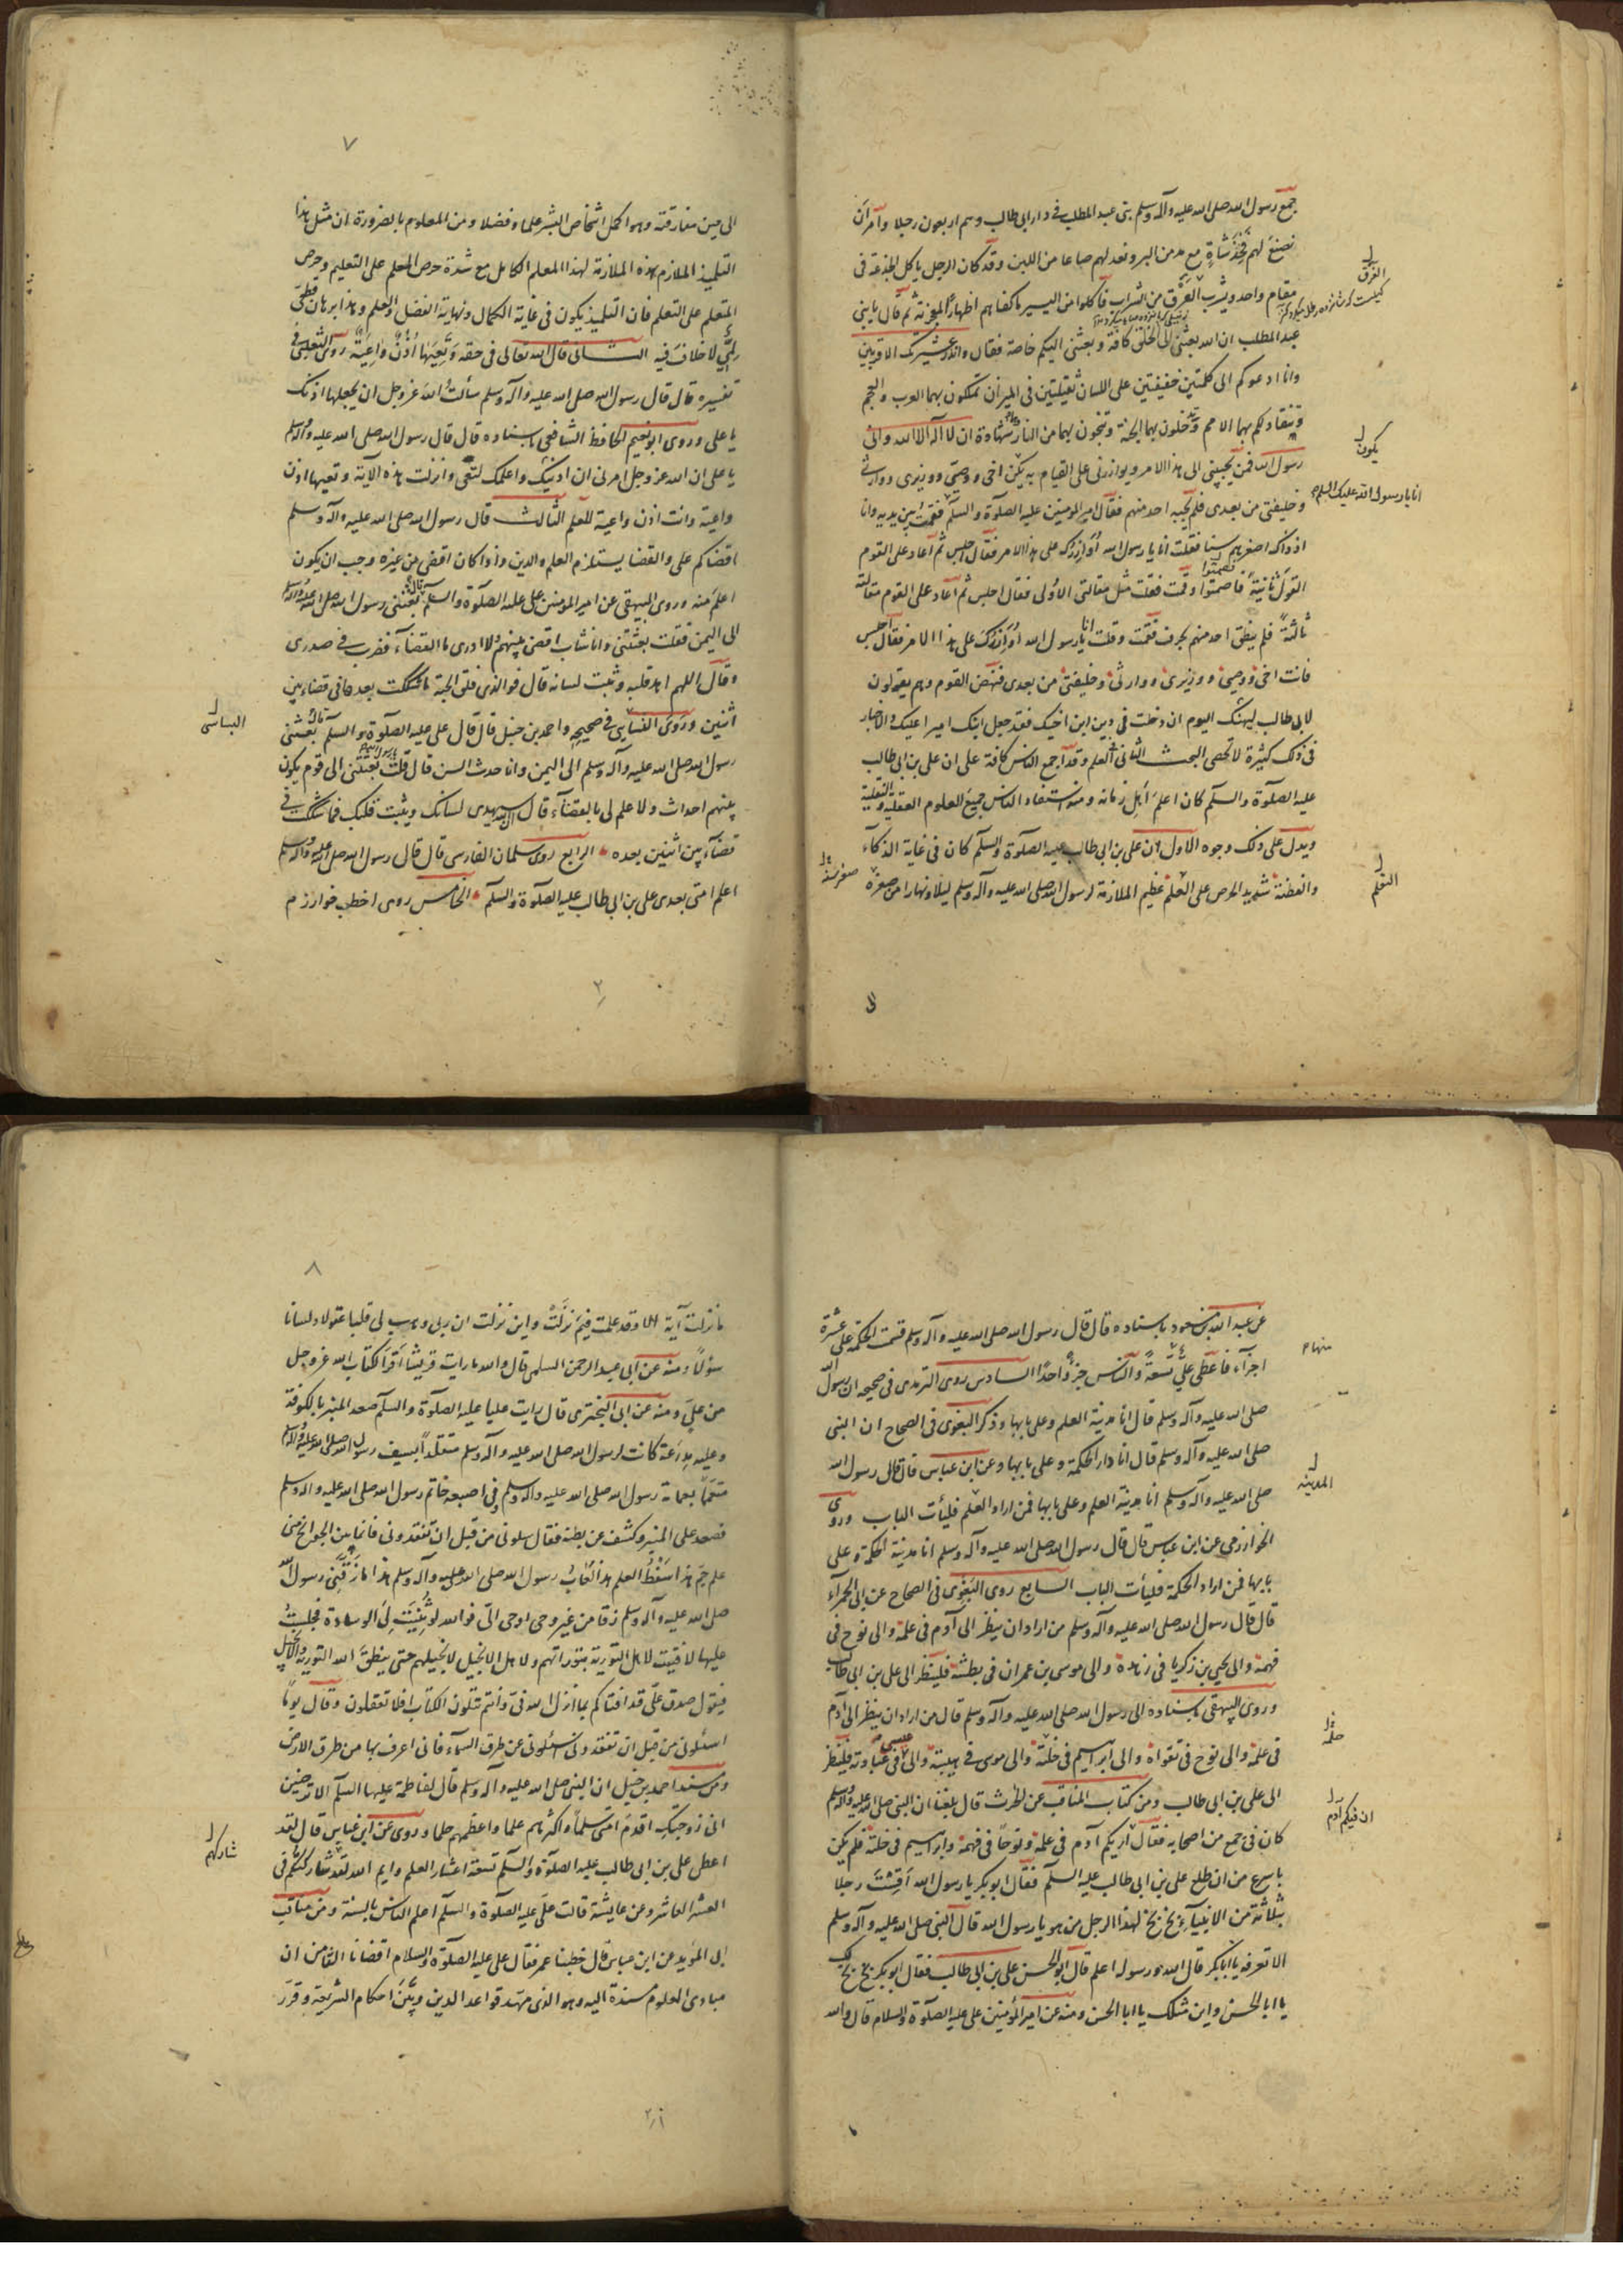 جمع رسول الله صلى الله عليه وآله وسلم بنى عبد المطلب فى دار ابى طالب وهم اربعون رجلا وامر ان
نصنع لهم فخذ شاة مع مد من البر ونعد لهم صاعا من اللبن وقد كان الرجل ياكل الجذعة فى
مقام واحد ويشرب الفرق من الشراب فاكلوا من اليسير ما كفاهم اظهارا لمعجزته ثم قال يا بنى
عبد المطلب ان الله بعثنى الى الخلق كافة وبعثنى اليكم خاصة فقال وانذر عشيرتك الاقربين
وانا ادعوكم الى كلمتين خفيفتين على اللسان ثقيلتين فى الميزان تملكون بهما العرب والعجم
وينقاد لكم بهما الامم وتدخلون بهما الجنة وتنجون بهما من النار شهادة ان لا اله الا الله وانى
رسول الله فمن يجيبنى الى هذا الامر ويوازرنى على القيام به يكن اخى ووصيى ووزيرى ووارثى
وخليفتى من بعدى فلم يجبه احد منهم فقال امير المومنين عليه الصلوة والسلم فقمت بين يديه وانا
اذ ذاك اصغرهم سنا فقلت انا يا رسول الله اوازرك على هذا الامر فقال اجلس ثم اعاد على القوم
القول ثانية فاصمتوا وقمت فقلت مثل مقالتى الاولى فقال اجلس ثم اعاد على القوم مقالته
ثالثة فلم ينطق احد منهم بحرف فقمت وقلت انا يا رسول الله اوازرك على هذا الامر فقال اجلس
فانت اخى ووصيى ووزيرى ووارثى وخليفتى من بعدى فنهض القوم وهم يقولون
لابى طالب ليهنك اليوم ان دخلت فى دين ابن اخيك فقد جعل ابنك اميرا عليك والاخبار
فى ذلك كثيرة لا تحصى البحث الثانى العلم وقد اجمع الناس كافة على ان على بن ابى طالب
عليه الصلوة والسلم كان اعلم اهل زمانه ومنه استفاد الناس جميع العلوم العقلية والنقلية
ويدل على ذلك وجوه الاول ان على بن ابى طالب عليه الصلوة والسلم كان فى غاية الذكآء
والفطنة شديد الحرص على العلم عظيم الملازمة لرسول الله صلى الله عليه وآله وسلم ليلا ونهارا من صغره
الفرق
يكون
انا يا رسول الله عليك السلم
التعلم
صغر سنه
٧
الى حين مفارقته وهو اكمل اشخاص البشر علما وفضلا ومن المعلوم بالضرورة ان مثل هذا
التلميذ الملازم هذه الملازمة لهذا المعلم الكامل مع شدة حرص المعلم على التعليم وحرص
المتعلم على التعلم فان التلميذ يكون فى غاية الكمال ونهاية الفضل والعلم وهذا برهان قطعى
لمى لا خلاف فيه الثانى قال الله تعالى فى حقه وتعيها اذن واعية روى الثعلبى فى
تفسيره قال قال رسول الله صلى الله عليه وآله وسلم سألت الله عز وجل ان يجعلها اذنك
يا على وروى ابو نعيم الحافظ الشافعى باسناده قال قال رسول الله صلى الله عليه وآله وسلم
يا على ان الله عز وجل امرنى ان ادنيك واعلمك لتعى وانزلت هذه الآية وتعيها اذن
واعية وانت اذن واعية للعلم الثالث قال رسول الله صلى الله عليه وآله وسلم
اقضاكم على والقضا يستلزم العلم والدين واذا كان اقضى من غيره وجب ان يكون
اعلم منه وروى البيهقى عن امير المومنين على عليه الصلوة والسلم قال بعثنى رسول الله صلى الله عليه وآله وسلم
الى اليمن فقلت بعثتنى وانا شاب اقضى بينهم ولا ادرى ما القضآء فضرب فى صدرى
وقال اللهم اهد قلبه وثبت لسانه قال فوالذى فلق الحبة ما شككت بعدها فى قضاء بين
اثنين وروى النسايى فى صحيحه واحمد بن حنبل قال قال على عليه الصلوة والسلم قال بعثنى
رسول الله صلى الله عليه وآله وسلم الى اليمن وانا حدث السن قال قلت بعثتنى الى قوم يكون
بينهم احداث ولا علم لى بالقضآء قال ان الله سيهدى لسانك ويثبت قلبك فما شككت فى
قضآء بين اثنين بعده الرابع روى سلمان الفارسى قال قال رسول الله صلى الله عليه وآله وسلم
اعلم امتى بعدى على بن ابى طالب عليه الصلوة والسلم الخامس روى اخطب خوارزم
النسائى
عن عبد الله بن مسعود باسناده قال قال رسول الله صلى الله عليه وآله وسلم قسمت الحكمة على عشرة
اجزآء فاعطى على تسعة والناس جزءا واحدا السادس روى الترمذى فى صحيحه ان رسول الله
صلى الله عليه وآله وسلم قال انا مدينة العلم وعلى بابها وذكر البغوى فى الصحاح ان النبى
صلى الله عليه وآله وسلم قال انا دار الحكمة وعلى بابها وعن ابن عباس قال قال رسول الله
صلى الله عليه وآله وسلم انا مدينة العلم وعلى بابها فمن اراد العلم فليأت الباب وروى
الخوارزمى عن ابن عباس قال قال رسول الله صلى الله عليه وآله وسلم انا مدينة الحكمة وعلى
بابها فمن اراد الحكمة فليأت الباب السابع روى البغوى فى الصحاح عن ابى الحمرآء
قال قال رسول الله صلى الله عليه وآله وسلم من اراد ان ينظر الى آدم فى علمه والى نوح فى
فهمه والى يحيى بن زكريا فى زهده والى موسى بن عمران فى بطشه فلينظر الى على بن ابى طالب
وروى البيهقى باسناده الى رسول الله صلى الله عليه وآله وسلم قال من اراد ان ينظر الى آدم
فى علمه والى نوح فى تقواه والى ابراهيم فى خلته والى موسى فى هيبته والى عيسى فى عبادته فلينظر
الى على بن ابى طالب ومن كتاب المناقب عن الحرث قال بلغنا ان النبى صلى الله عليه وآله وسلم
كان فى جمع من اصحابه فقال اريكم آدم فى علمه ونوحا فى فهمه وابراهيم فى خلته فلم يكن
باسرع من ان طلع على بن ابى طالب عليه السلم فقال ابو بكر يا رسول الله اقست رجلا
بثلثة من الانبيآء بخ بخ لهذا الرجل من هو يا رسول الله قال النبى صلى الله عليه وآله وسلم
الا تعرفه يا ابا بكر قال الله ورسوله اعلم قال ابو الحسن على بن ابى طالب فقال ابو بكر بخ بخ لك
يا ابا الحسن واين مثلك يا ابا الحسن ومنه عن امير المؤمنين على عليه الصلوة والسلام قال والله
منهام
المدينه
حلمه
ان فيكم آدم
٨
ما نزلت آية الا وقد علمت فيم نزلت واين نزلت ان ربى وهب لى قلبا عقولا ولسانا
سؤلا ومنه عن ابى عبد الرحمن السلمى قال والله ما رايت قريشا اقرا لكتاب الله عز وجل
من على ومنه عن ابى البخترى قال رايت عليا عليه الصلوة والسلم صعد المنبر بالكوفة
وعليه مدرعة كانت لرسول الله صلى الله عليه وآله وسلم متقلدا بسيف رسول الله صلى الله عليه وآله وسلم
متعمما بعمامة رسول الله صلى الله عليه وآله وسلم وفى اصبعه خاتم رسول الله صلى الله عليه وآله وسلم
فصعد على المنبر وكشف عن بطنه فقال سلونى من قبل ان تفقدونى فانما بين الجوانح منى
علم جم هذا سفط العلم هذا لعاب رسول الله صلى الله عليه وآله وسلم هذا ما زقنى رسول الله
صلى الله عليه وآله وسلم زقا من غير وحى اوحى الى فوالله لو ثنيت لى الوسادة فجلست
عليها لافتيت لاهل التورية بتوراتهم ولاهل الانجيل لانجيلهم حتى ينطق الله التورية والانجيل
فيقول صدق على قد افتاكم بما انزل الله فى وانتم تتلون الكتاب افلا تعقلون وقال يوما
اسئلونى من قبل ان تفقدونى اسئلونى عن طرق السماء فانى اعرف بها من طرق الارض
ومن مسند احمد بن حنبل ان النبى صلى الله عليه وآله وسلم قال لفاطمة عليها السلم الا ترضين
انى زوجتك اقدم امتى سلما واكثرهم علما واعظمهم حلما وروى عن ابن عباس قال لقد
اعطى على بن ابى طالب عليه الصلوة والسلم تسعة اعشار العلم وايم الله لقد شارككم فى
العشر العاشر وعن عايشة قالت على عليه الصلوة والسلم اعلم الناس بالسنة ومن مناقب
ابى المؤيد عن ابن عباس قال خطبنا عمر فقال على عليه الصلوة والسلام اقضانا الثامن ان
مبادى العلوم مسندة اليه وهو الذى مهد قواعد الدين وبين احكام الشريعة وقرر
شاركهم